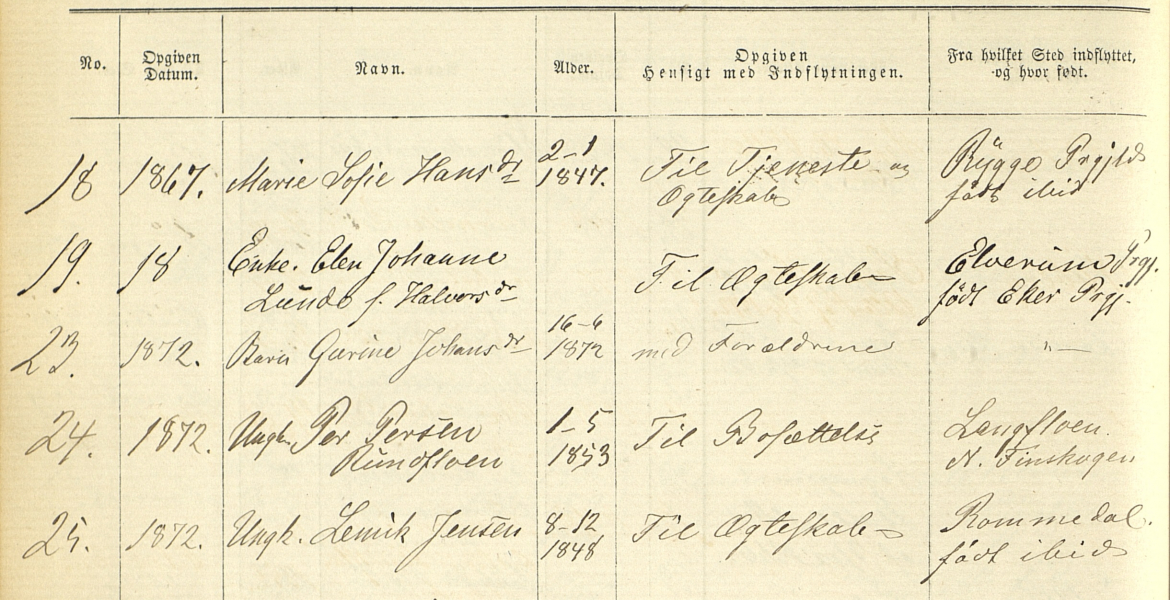 No.
Opgiven
Datum.
Navn.
Alder.
Opgiven
Hensigt med Indflytningen.
Fra hvilket Sted indflyttet,
og hvor født.
18 1867. Marie Sofie Hansdr 2-1 1847. Til Tjeneste og
Ogteskab
Rygge Prgjld
født ibid
19. 18 Enke. Elen Johanne
Lunde f. Halvorsdr
Til Ogteskab
Elverum Prgj.
født Eker Prgj.
23. 1872. Barn Gurine Johansdr 16-6 1872 med Forældrene "—
24. 1872. Ungk. Per Persen
Rundfloen
1-5
1853
Til Bosættelse
Lengfloen.
N. Finskogen
25. 1872. Ungk. Jensen 8-12
1848
Til Ogteskab
Rommedal.
født ibid